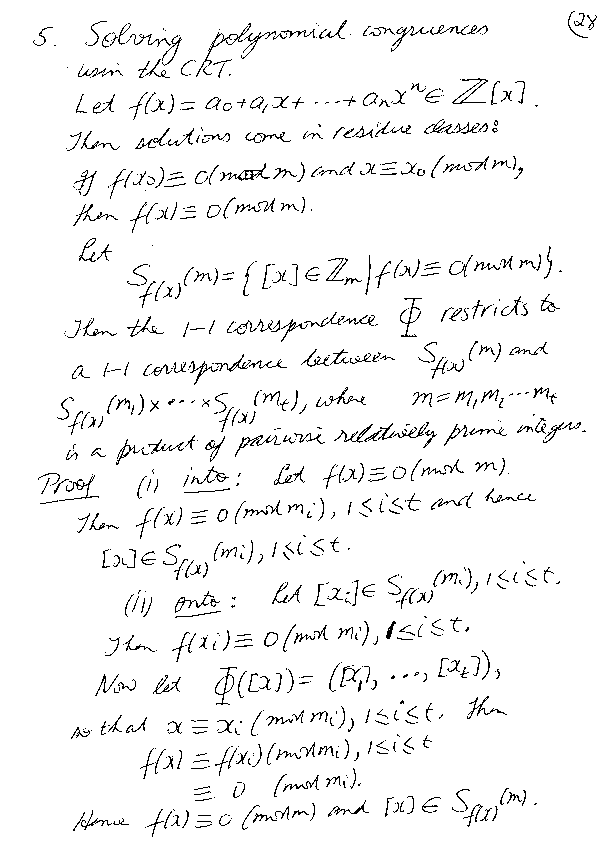 (28
5. Solving polynomial congruences
usin the CRT.
Let f(x) = a₀+a₁x+ ⋯ +aₙxⁿ ∈ ℤ[x].
Then solutions come in residue classes:
If f(x₀) ≡ 0 (mod m) and x ≡ x₀ (mod m),
then f(x) ≡ 0 (mod m).
Let
S_f(x)(m) = { [x] ∈ ℤₘ | f(x) ≡ 0 (mod m) }.
Then the 1–1 correspondence Φ restricts to
a 1–1 correspondence between S_f(x)(m) and
S_f(x)(m₁) × ⋯ × S_f(x)(m_t), where m = m₁m₂⋯m_t
is a product of pairwise relatively prime integers.
Proof (i) into: Let f(x) ≡ 0 (mod m).
Then f(x) ≡ 0 (mod mᵢ), 1≤i≤t and hence
[x] ∈ S_f(x)(mᵢ), 1≤i≤t.
(ii) onto: Let [xᵢ] ∈ S_f(x)(mᵢ), 1≤i≤t.
Then f(xᵢ) ≡ 0 (mod mᵢ), 1≤i≤t.
Now let Φ([x]) = ([x₁], ⋯, [x_t]),
so that x ≡ xᵢ (mod mᵢ), 1≤i≤t. Then
f(x) ≡ f(xᵢ) (mod mᵢ), 1≤i≤t
≡ 0 (mod mᵢ).
Hence f(x) ≡ 0 (mod m) and [x] ∈ S_f(x)(m).